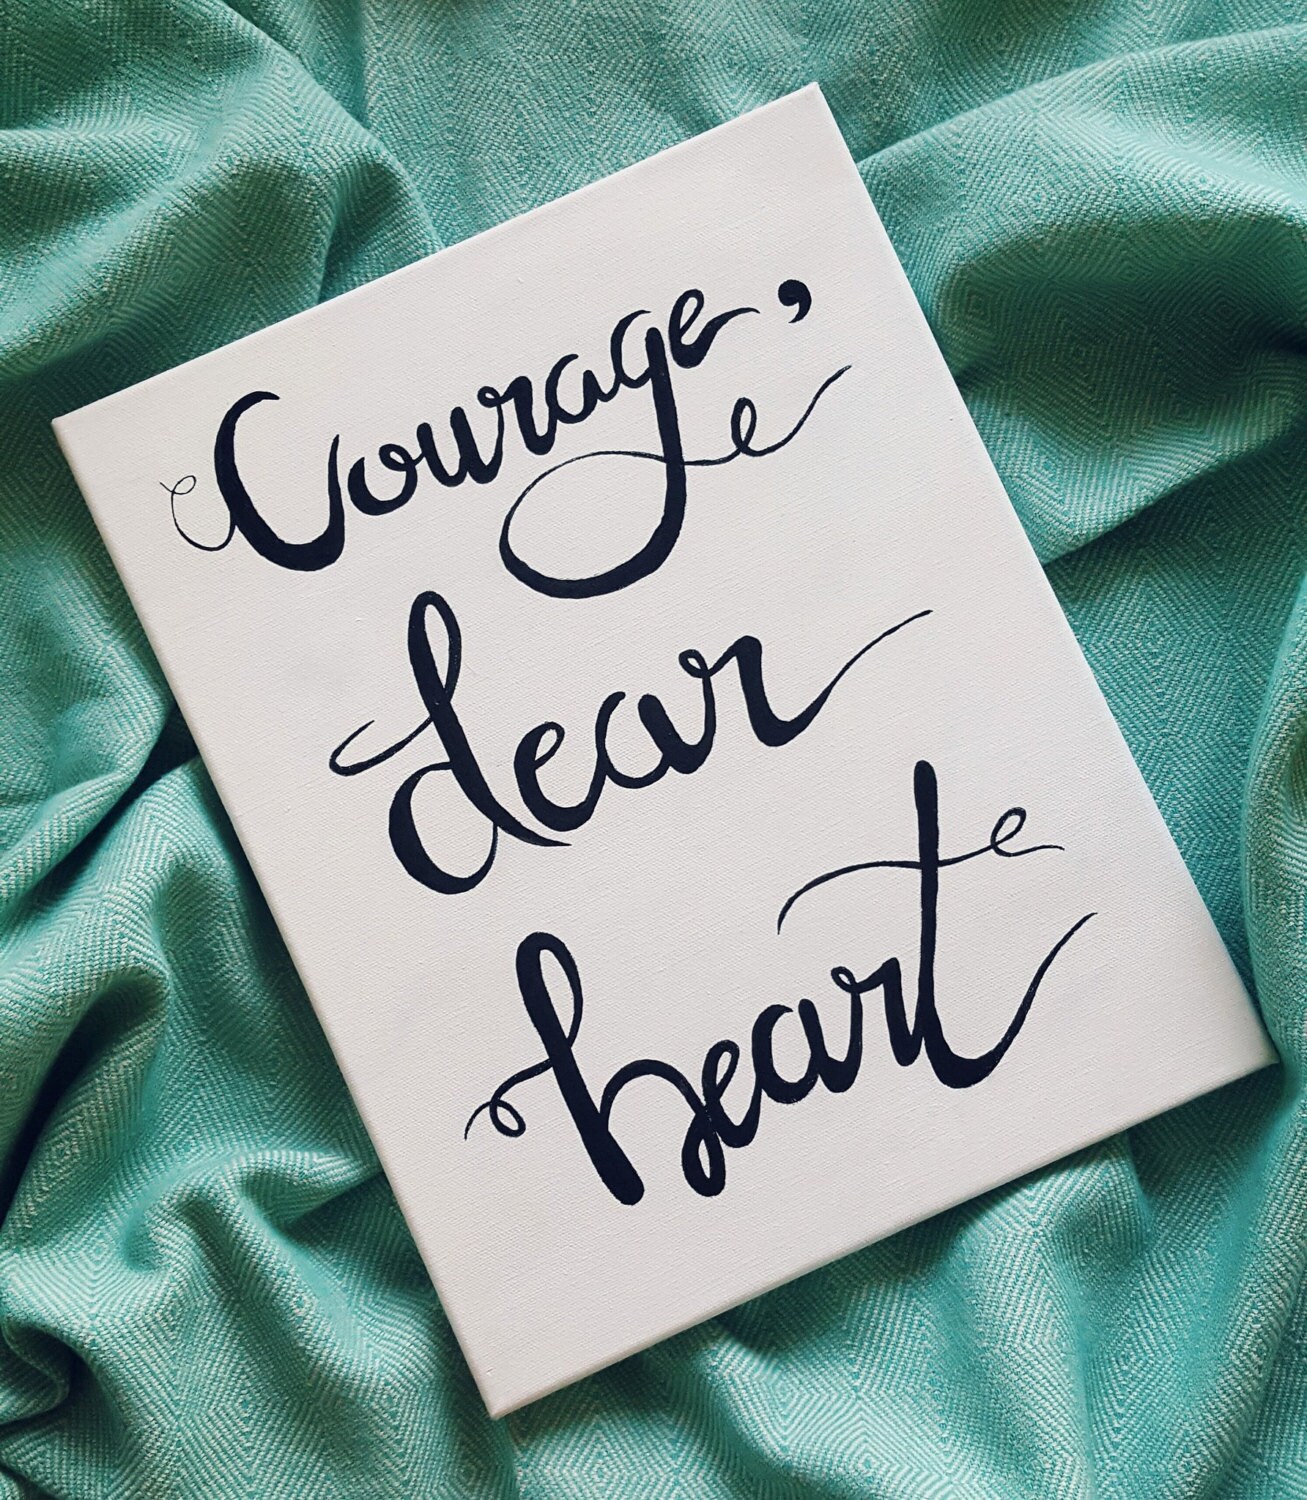 Courage,
dear
heart